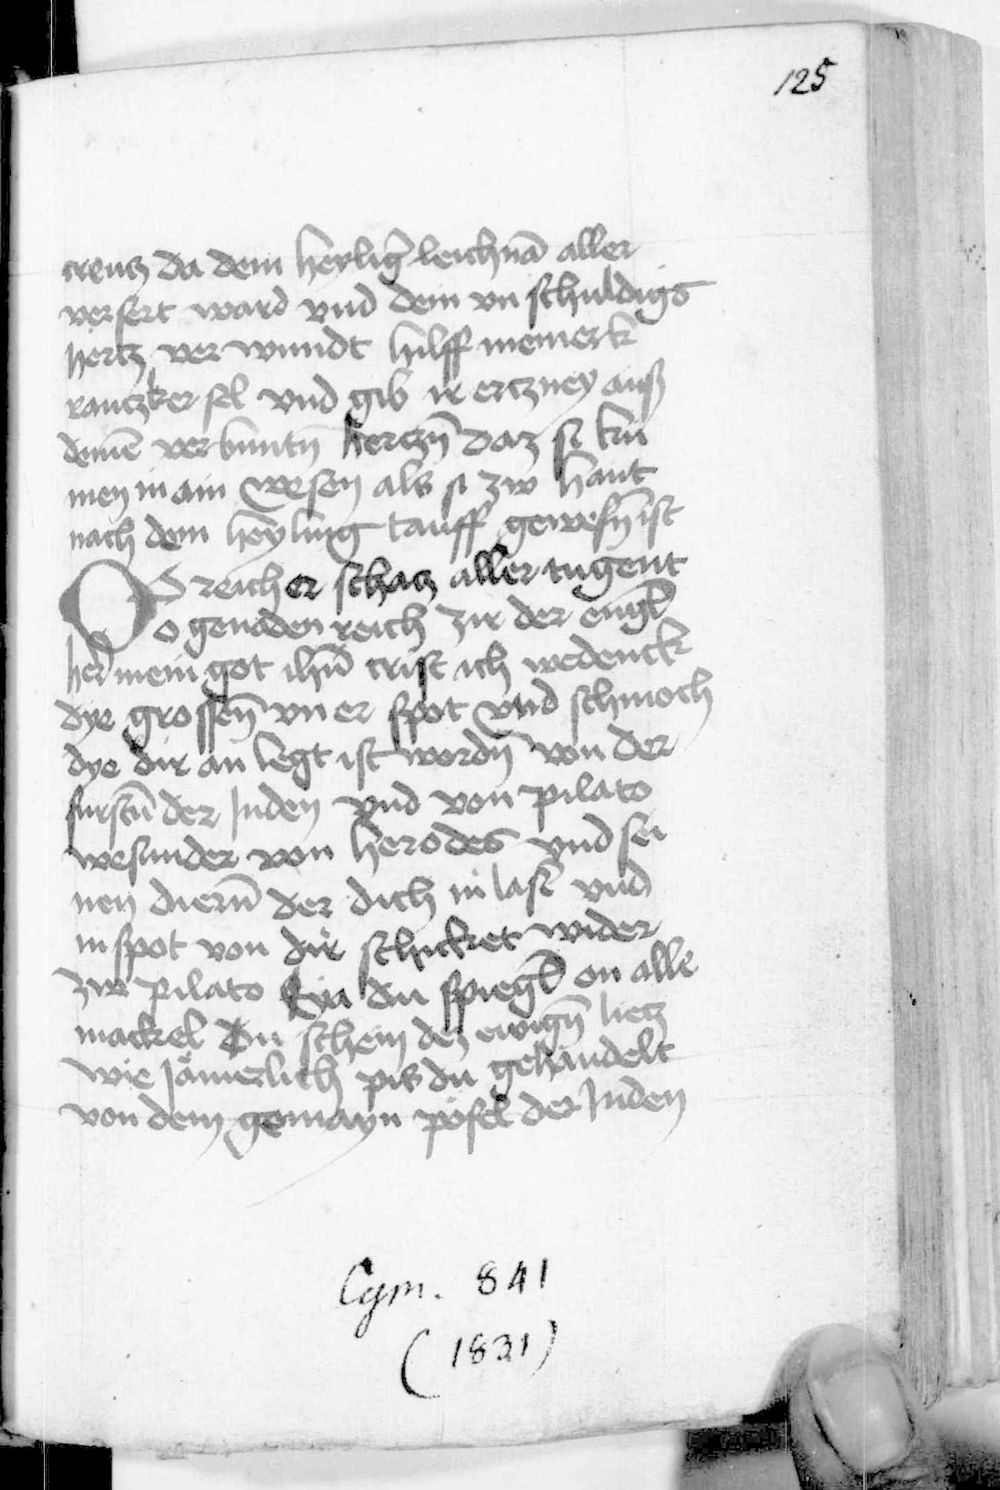 125
creutz da dem heylig̃ leichnã aller
versert ward vnd dein vn schuldigs
hertz ver wundt hilff meiner k
rantzker sel vnd gib ir ertzney auß
deinē verbuntñ hertzñ daz si kū
men in ain wesen als si zw hant
nach dem heyling tauff gewesñ ist
O reicher schatz aller tugent
o genaden reich zir der engl̃
her̃ mein got ihũ crist ich wedenck
dye grossen̄ vner spot vnd schmoch
dye dir an legt ist wordñ von der
furstñ der Juden vnd von pilato
wesunder von herodes vnd sei
nen diernñ der dich in last̃ vnd
in spot von dir schicket wider
zw pilato Eya du spiegl̃ on alle
mackel Du schein dez ewigñ lietz
wie Jämerlich pis du gehandelt
von dem gemayn pöfel der Juden
Cgm. 841
(1831)